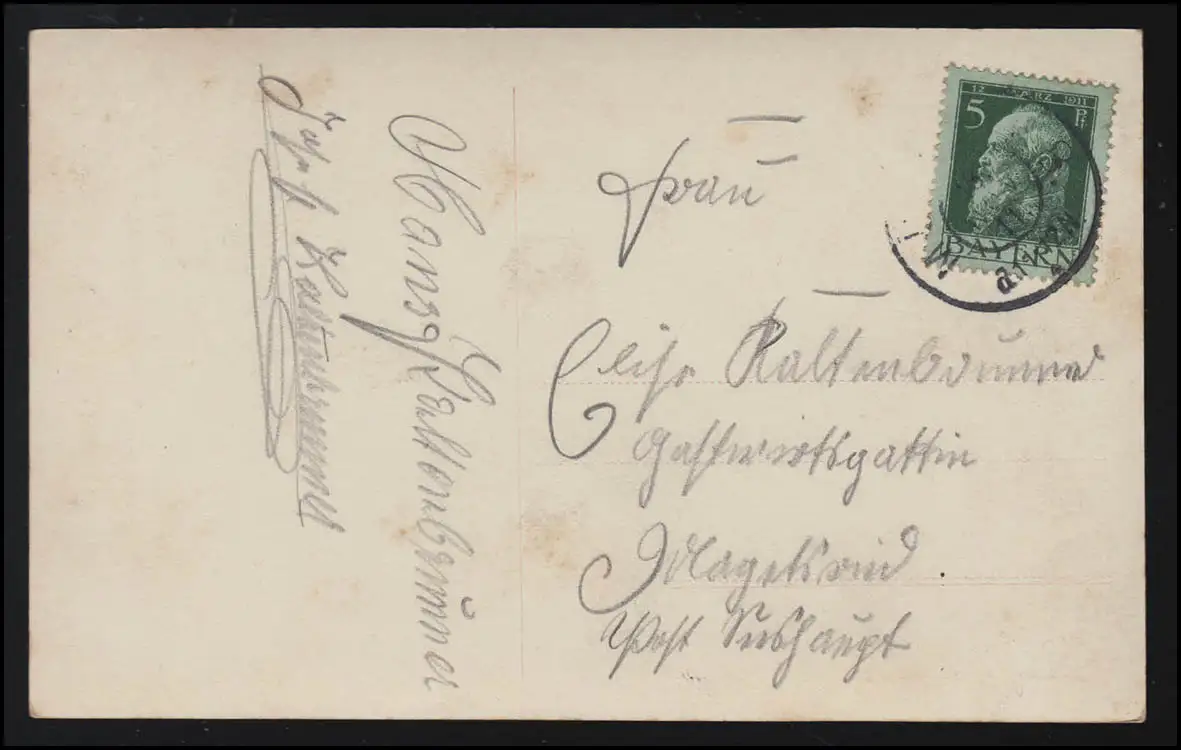 12 MÄRZ 1911
5 Pf
BAYERN
Frau
Elise Kaltenbrunner
Gastwirtsgattin
Magetsried
Post Seeshaupt
Hans Kaltenbrunner
Kaltenbrunner